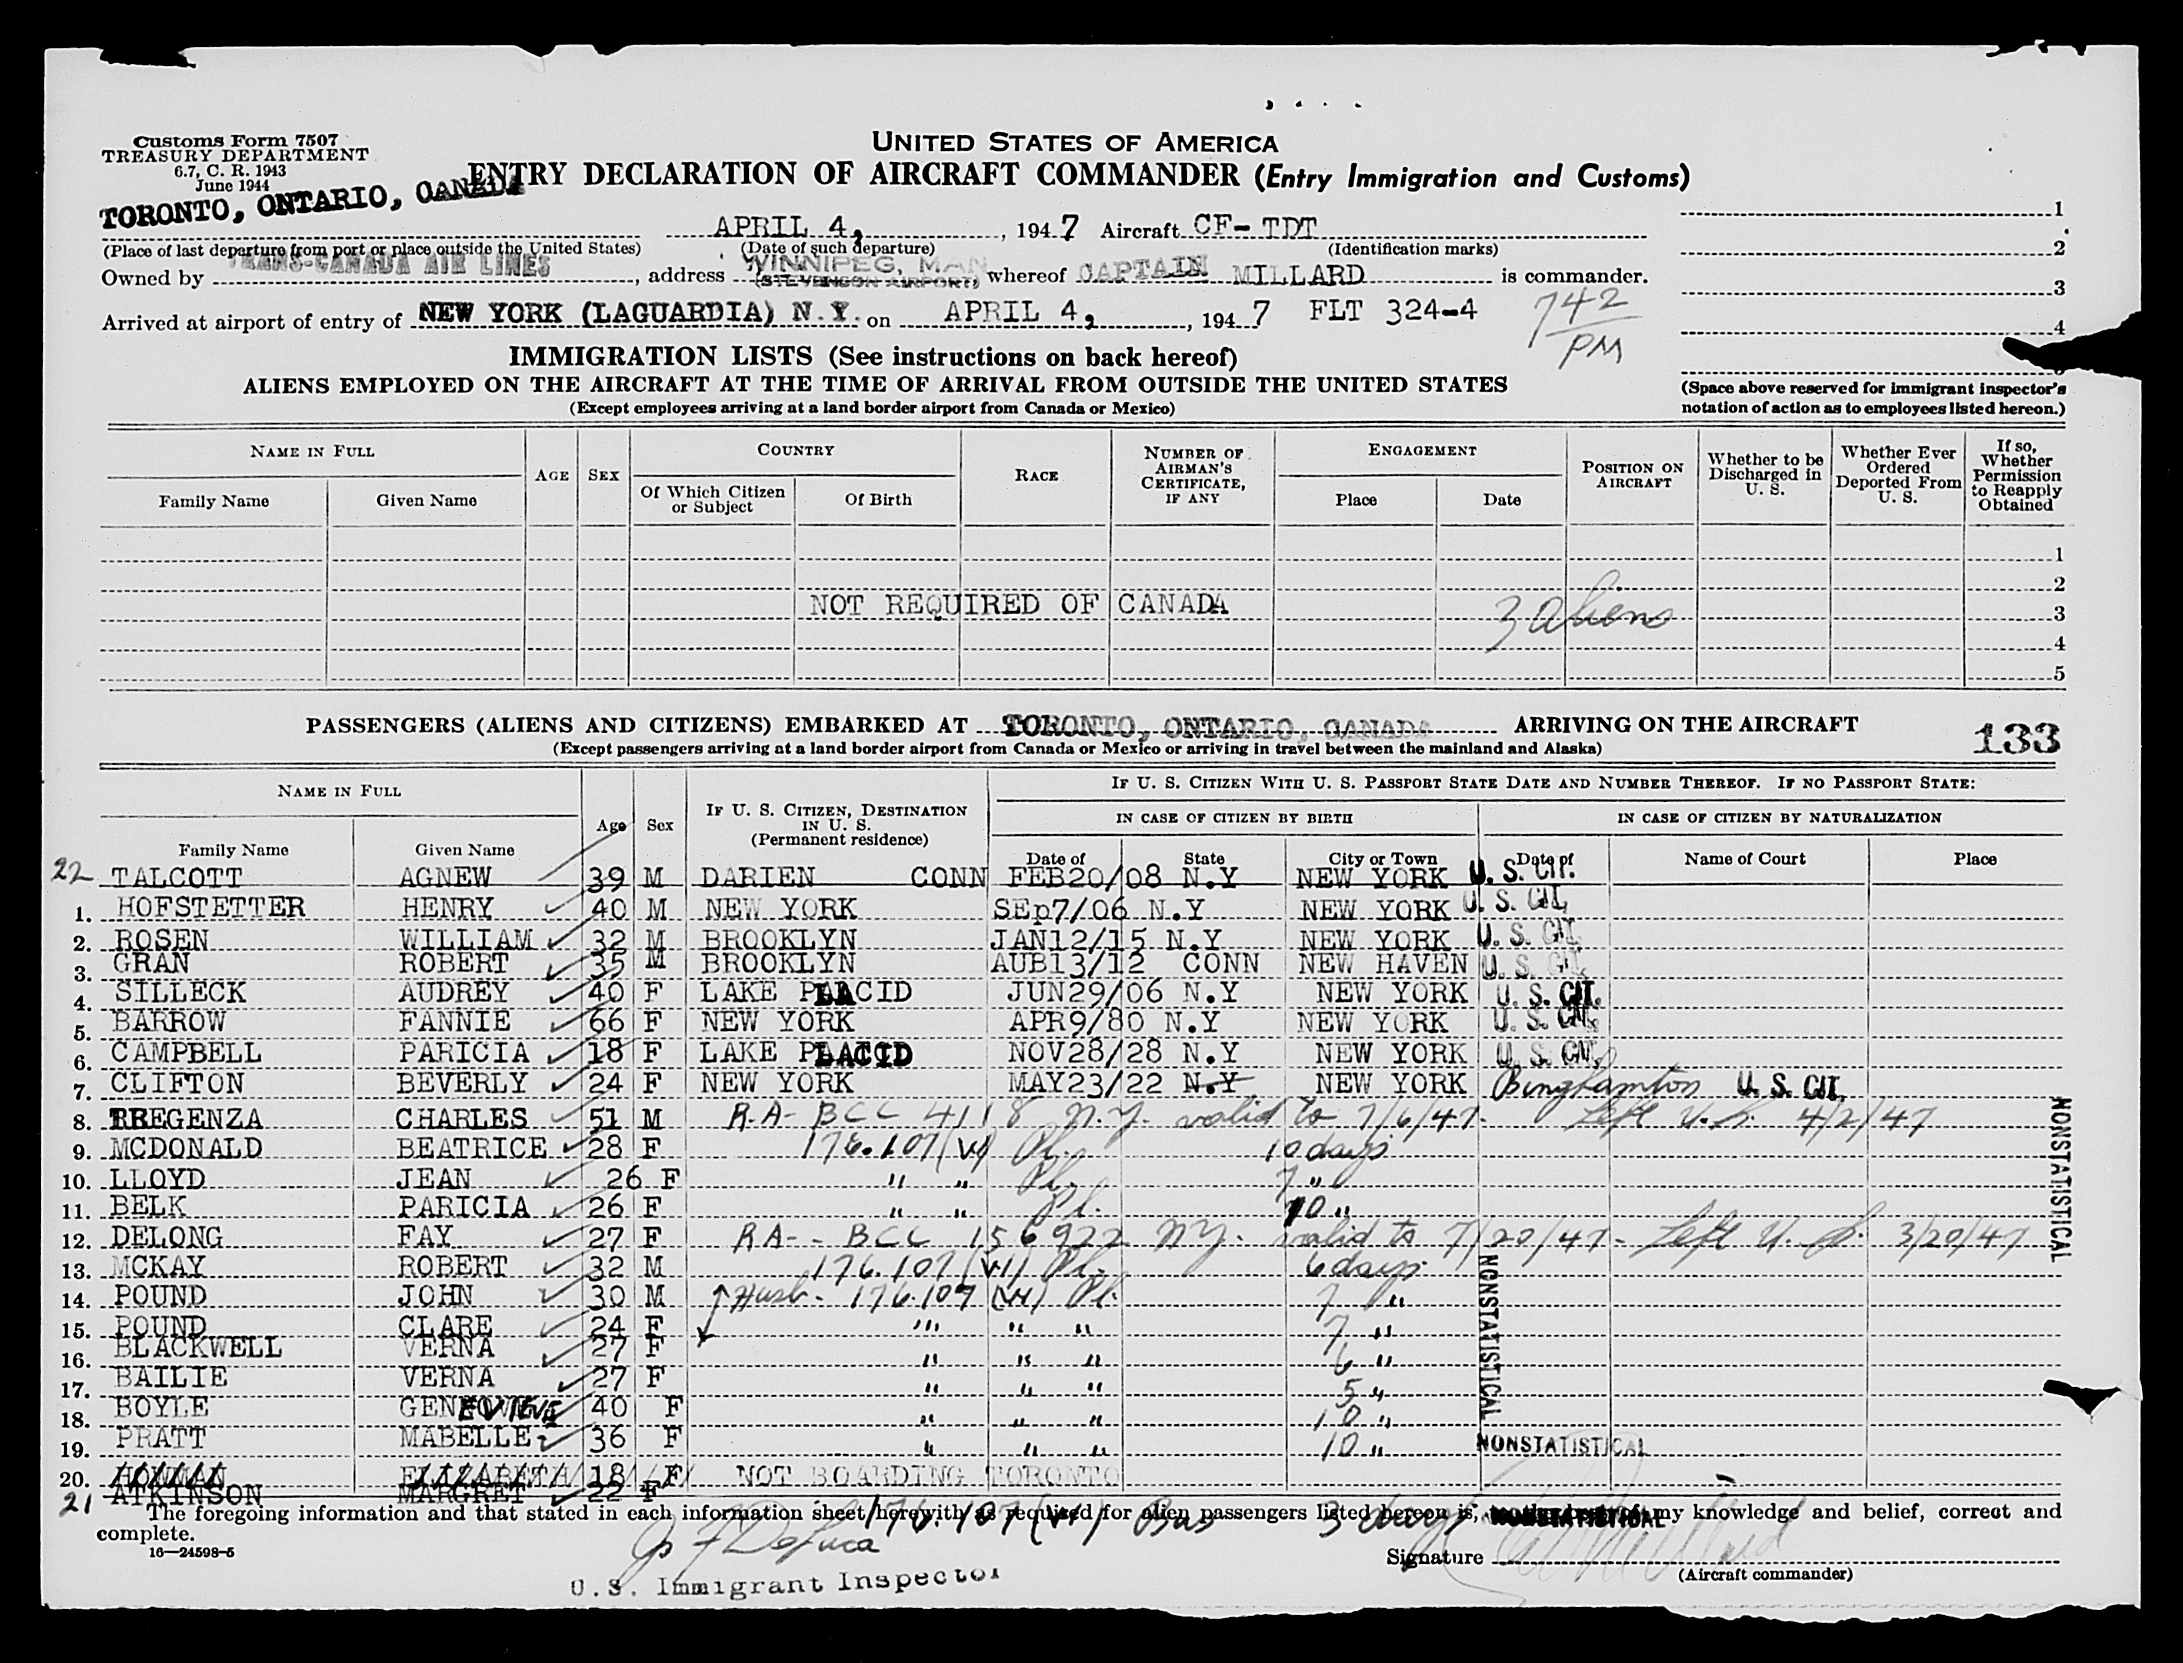 Customs Form 7507
TREASURY DEPARTMENT
6.7, C. R. 1943
June 1944
UNITED STATES OF AMERICA
ENTRY DECLARATION OF AIRCRAFT COMMANDER (Entry Immigration and Customs)
TORONTO, ONTARIO, CANADA APRIL 4, , 1947 Aircraft CF-TDT
(Place of last departure from port or place outside the United States) (Date of such departure) (Identification marks)
Owned by TRANS-CANADA AIR LINES , address WINNIPEG, MAN (STEVENSON AIRPORT) whereof CAPTAIN MILLARD is commander.
Arrived at airport of entry of NEW YORK (LAGUARDIA) N.Y. on APRIL 4, , 1947 FLT 324-4 742 PM
1
2
3
4
IMMIGRATION LISTS (See instructions on back hereof)
ALIENS EMPLOYED ON THE AIRCRAFT AT THE TIME OF ARRIVAL FROM OUTSIDE THE UNITED STATES
(Except employees arriving at a land border airport from Canada or Mexico)
(Space above reserved for immigrant inspector's
notation of action as to employees listed hereon.)
NAME IN FULL AGE SEX COUNTRY RACE NUMBER OF AIRMAN'S CERTIFICATE, IF ANY ENGAGEMENT POSITION ON AIRCRAFT Whether to be Discharged in U. S. Whether Ever Ordered Deported From U. S. If so, Whether Permission to Reapply Obtained
Family Name Given Name Of Which Citizen or Subject Of Birth Place Date
1
2
NOT REQUIRED OF CANADA 3 aliens 3
4
5
PASSENGERS (ALIENS AND CITIZENS) EMBARKED AT TORONTO, ONTARIO, CANADA ARRIVING ON THE AIRCRAFT
(Except passengers arriving at a land border airport from Canada or Mexico or arriving in travel between the mainland and Alaska)
133
NAME IN FULL Age Sex IF U. S. CITIZEN, DESTINATION IN U. S. (Permanent residence) IF U. S. CITIZEN WITH U. S. PASSPORT STATE DATE AND NUMBER THEREOF. IF NO PASSPORT STATE:
IN CASE OF CITIZEN BY BIRTH IN CASE OF CITIZEN BY NATURALIZATION
Family Name Given Name Date of State City or Town Date of Name of Court Place
22 TALCOTT AGNEW 39 M DARIEN CONN FEB20/08 N.Y NEW YORK U. S. CIT.
1. HOFSTETTER HENRY 40 M NEW YORK SEp7/06 N.Y NEW YORK U. S. CIT.
2. ROSEN WILLIAM 32 M BROOKLYN JAN12/15 N.Y NEW YORK U. S. CIT.
3. GRAN ROBERT 35 M BROOKLYN AUB13/12 CONN NEW HAVEN U. S. CIT.
4. SILLECK AUDREY 40 F LAKE PLACID JUN29/06 N.Y NEW YORK U. S. CIT.
5. BARROW FANNIE 66 F NEW YORK APR9/80 N.Y NEW YORK U. S. CIT.
6. CAMPBELL PARICIA 18 F LAKE PLACID NOV28/28 N.Y NEW YORK U. S. CIT.
7. CLIFTON BEVERLY 24 F NEW YORK MAY23/22 N.Y NEW YORK Binghamton U. S. CIT.
8. BREGENZA CHARLES 51 M R.A- BCC 4118 N.Y. valid to 7/6/47. Left U.S. 4/2/47
9. MCDONALD BEATRICE 28 F 176.107(VI) Pl. 10 days
10. LLOYD JEAN 26 F " " Pl. 7 "
11. BELK PARICIA 26 F " " Pl. 10 "
12. DELONG FAY 27 F RA- - BCC 156922 NY. valid to 7/20/47- Left U. S. 3/20/47
13. MCKAY ROBERT 32 M 176.107(VI) Pl. 6 days.
14. POUND JOHN 30 M Husb- 176.107 (VI) Pl. 7 "
15. POUND CLARE 24 F " " " 7 "
16. BLACKWELL VERNA 27 F " " " 6 "
17. BAILIE VERNA 27 F " " " 5 "
18. BOYLE GENEVIEVE 40 F " " " 10 "
19. PRATT MABELLE 36 F " " " 10 " NONSTATISTICAL
20. HOWMAN ELIZABETH 18 F NOT BOARDING TORONTO
21 ATKINSON MARGRET 22 F 176.107(VI) Bus 3 days NONSTATISTICAL
NONSTATISTICAL
NONSTATISTICAL
The foregoing information and that stated in each information sheet herewith as required for alien passengers listed hereon is, my knowledge and belief, correct and
complete.
16—24598-5
U.S. Immigrant Inspector
Signature
(Aircraft commander)